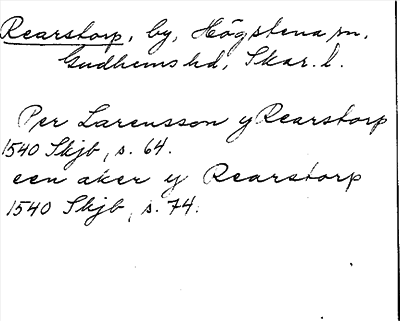 Rearstorp, by, Högstena sn.
Gudhems hd, Skar. l.
Per Larensson y Rearstorp
1540 Skjb, s. 64.
een aker y Rearstorp
1540 Skjb, s. 74.